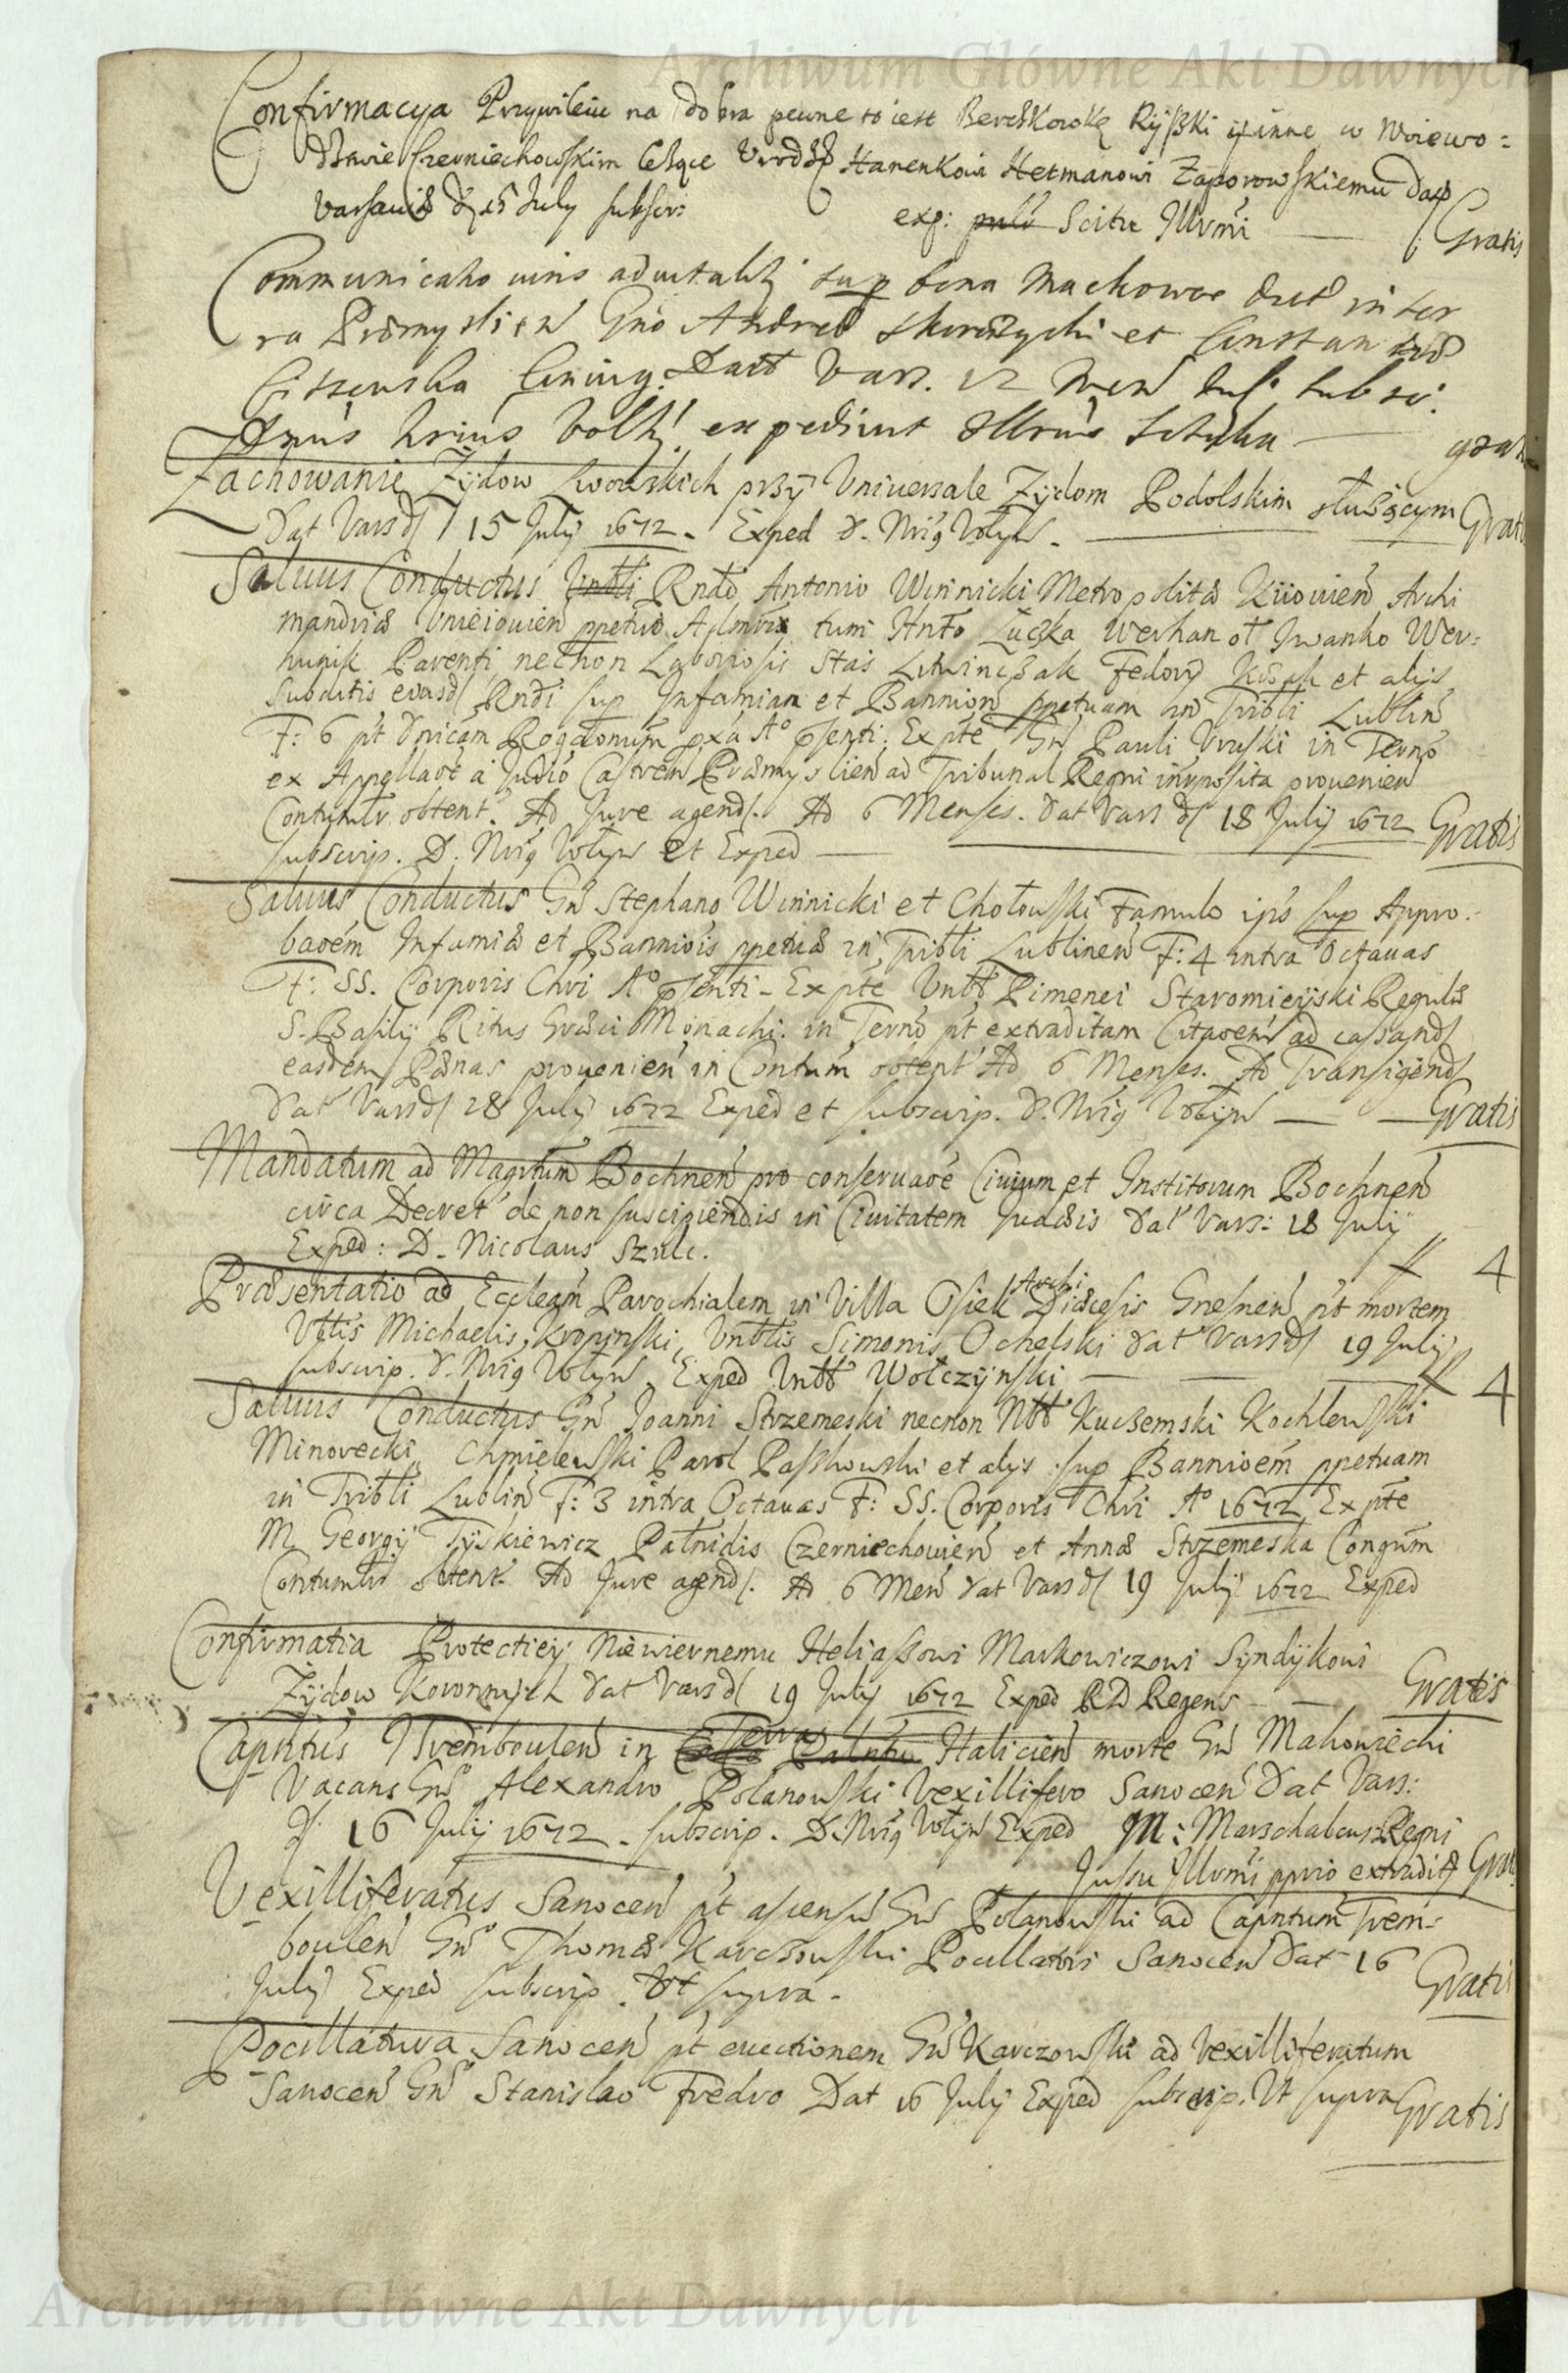 Archiwum Główne Akt Dawnych
Confirmacya Przywileiu na dobra pewne to iest Berezkowkę Ryßki y inne w Woiewo=
dztwie Czerniechowskim leżące Urodz. Hanenkowi Hetmanowi Zaporowskiemu Dat
Varsaviæ d. 15 July subscr:
exp: Scitu Illrmi Gratis
Communicatio iuris advitalit. sup bona Machowce dict in ter
ra Præmyslien Gno Andreæ et Constantiæ
Coniug. Datt Vars. 12 Men Jul. subscr.
expediunt gratis
Zachowanie Zydow Lwowskich przy Uniuersale Zydom Podolskim służącym Grat
Dat Vars d 15 July 1672. Exped D. Nrig Volyn.
Saluus Conductus Rndo Antonio Winnicki Metropolitæ Kiiouien Archi
mandriæ Unieiouien ppetuo tum Hnto Łuczka Werhan ot Iwanko Wer=
hunik Parenti necnon Laboriosis Stas Litwinczak Fedory et alijs
Subditis eiusd Rndi sup Infamiam et Bannion ppetuam in Tribli Lublin
F: 6 pt Dnicam Rogaonum pxa Ao psenti. Expte Gn Pauli Uruski in Termo
ex Appellaoe a Judio Castren Præmyslien ad Tribunal Regni interposita prouenien
Contumr obtent. Ad Jure agend. Ad 6 Menses. Dat Vars d 18 July 1672 Gratis
subscrip. D. Nrig Volyn et Exped
Saluus Conductus Gn Stephano Winnicki et Chołoßki Famulo ips sup Appro.
baoem Infamiæ et Banniois ppetuæ in Tribli Lublinen F: 4 intra Octauas
F: SS. Corporis Chri Ao psenti. Expte Vnbb Pimenei Staromieyski Regulæ
S. Basily Ritus Græci Monachi. in Termo pt extraditam Citaoem ad cassand
easdem Pænas prouenien in Contum obtent Ad 6 Menses. Ad Transigend
Dat Vars d 28 July 1672 Exped et subscrip. D. Nrig Volyn Gratis
Mandatum ad Magrtum Bochnen pro conseruaoe Ciuium et Institorum Bochnen
circa Decret de non suscipiendis in Ciuitatem Judæis Dat Vars: 18 July
Exped: D. Nicolaus Szulc. # 4
Præsentatio ad Eccleam Parochialem in Villa Osiek Archi Diæcesis Gnesnen pt mortem
Vblis Michaelis Kropinski, Vnblis Simonis Ochelski Dat Vars d 19 July
subscrip. D. Nrig Volyn. Exped Vnbb Wołczynski # 4
Saluus Conductus Gn Joanni Strzemeski necnon Nbb Kuczemski Kochlewski
Minorecki, Chmielewski Parol Paßkowski et alijs sup Bannioem ppetuam
in Tribli Lublin F: 3 intra Octauas F: SS. Corporis Chri Ao 1672 Expte
M. Georgij Tyskiewicz Palnidis Czerniechowien et Annæ Strzemeska Congum
Contumlr obtent. Ad Jure agend. Ad 6 Men Dat Vars d 19 July 1672 Exped
Confirmatia Protectiey Niewiernemu Heliaßowi Markowiczowi Syndykowi
Zydow Koronnych Dat Vars d 19 July 1672 Exped RD Regens Gratis
Capntus Trembowlen in Terra Halicien morte Gn Makowiecki
Vacans Gn Alexandro Polanowski Vexillifero Sanocen Dat Vars:
d. 16 July 1672. subscrip. D. Nrig Volyn Exped M: Marschalcus Regni
Jussu Illrmi pprio extradit Grat.
Vexilliferatus Sanocen pt ascensu Gn Polanowski ad Capntum Trem=
boulen Gno Thomæ Karczowski Pocillatori Sanocen Dat 16
July Exped subscrip. Vt supra. Gratis
Pocillatura Sanocen pt euectionem Gn Karczowski ad Vexilliferatum
Sanocen Gn Stanislao Fredro Dat 16 July Exped subscrip. Vt supra Gratis
Archiwum Główne Akt Dawnych